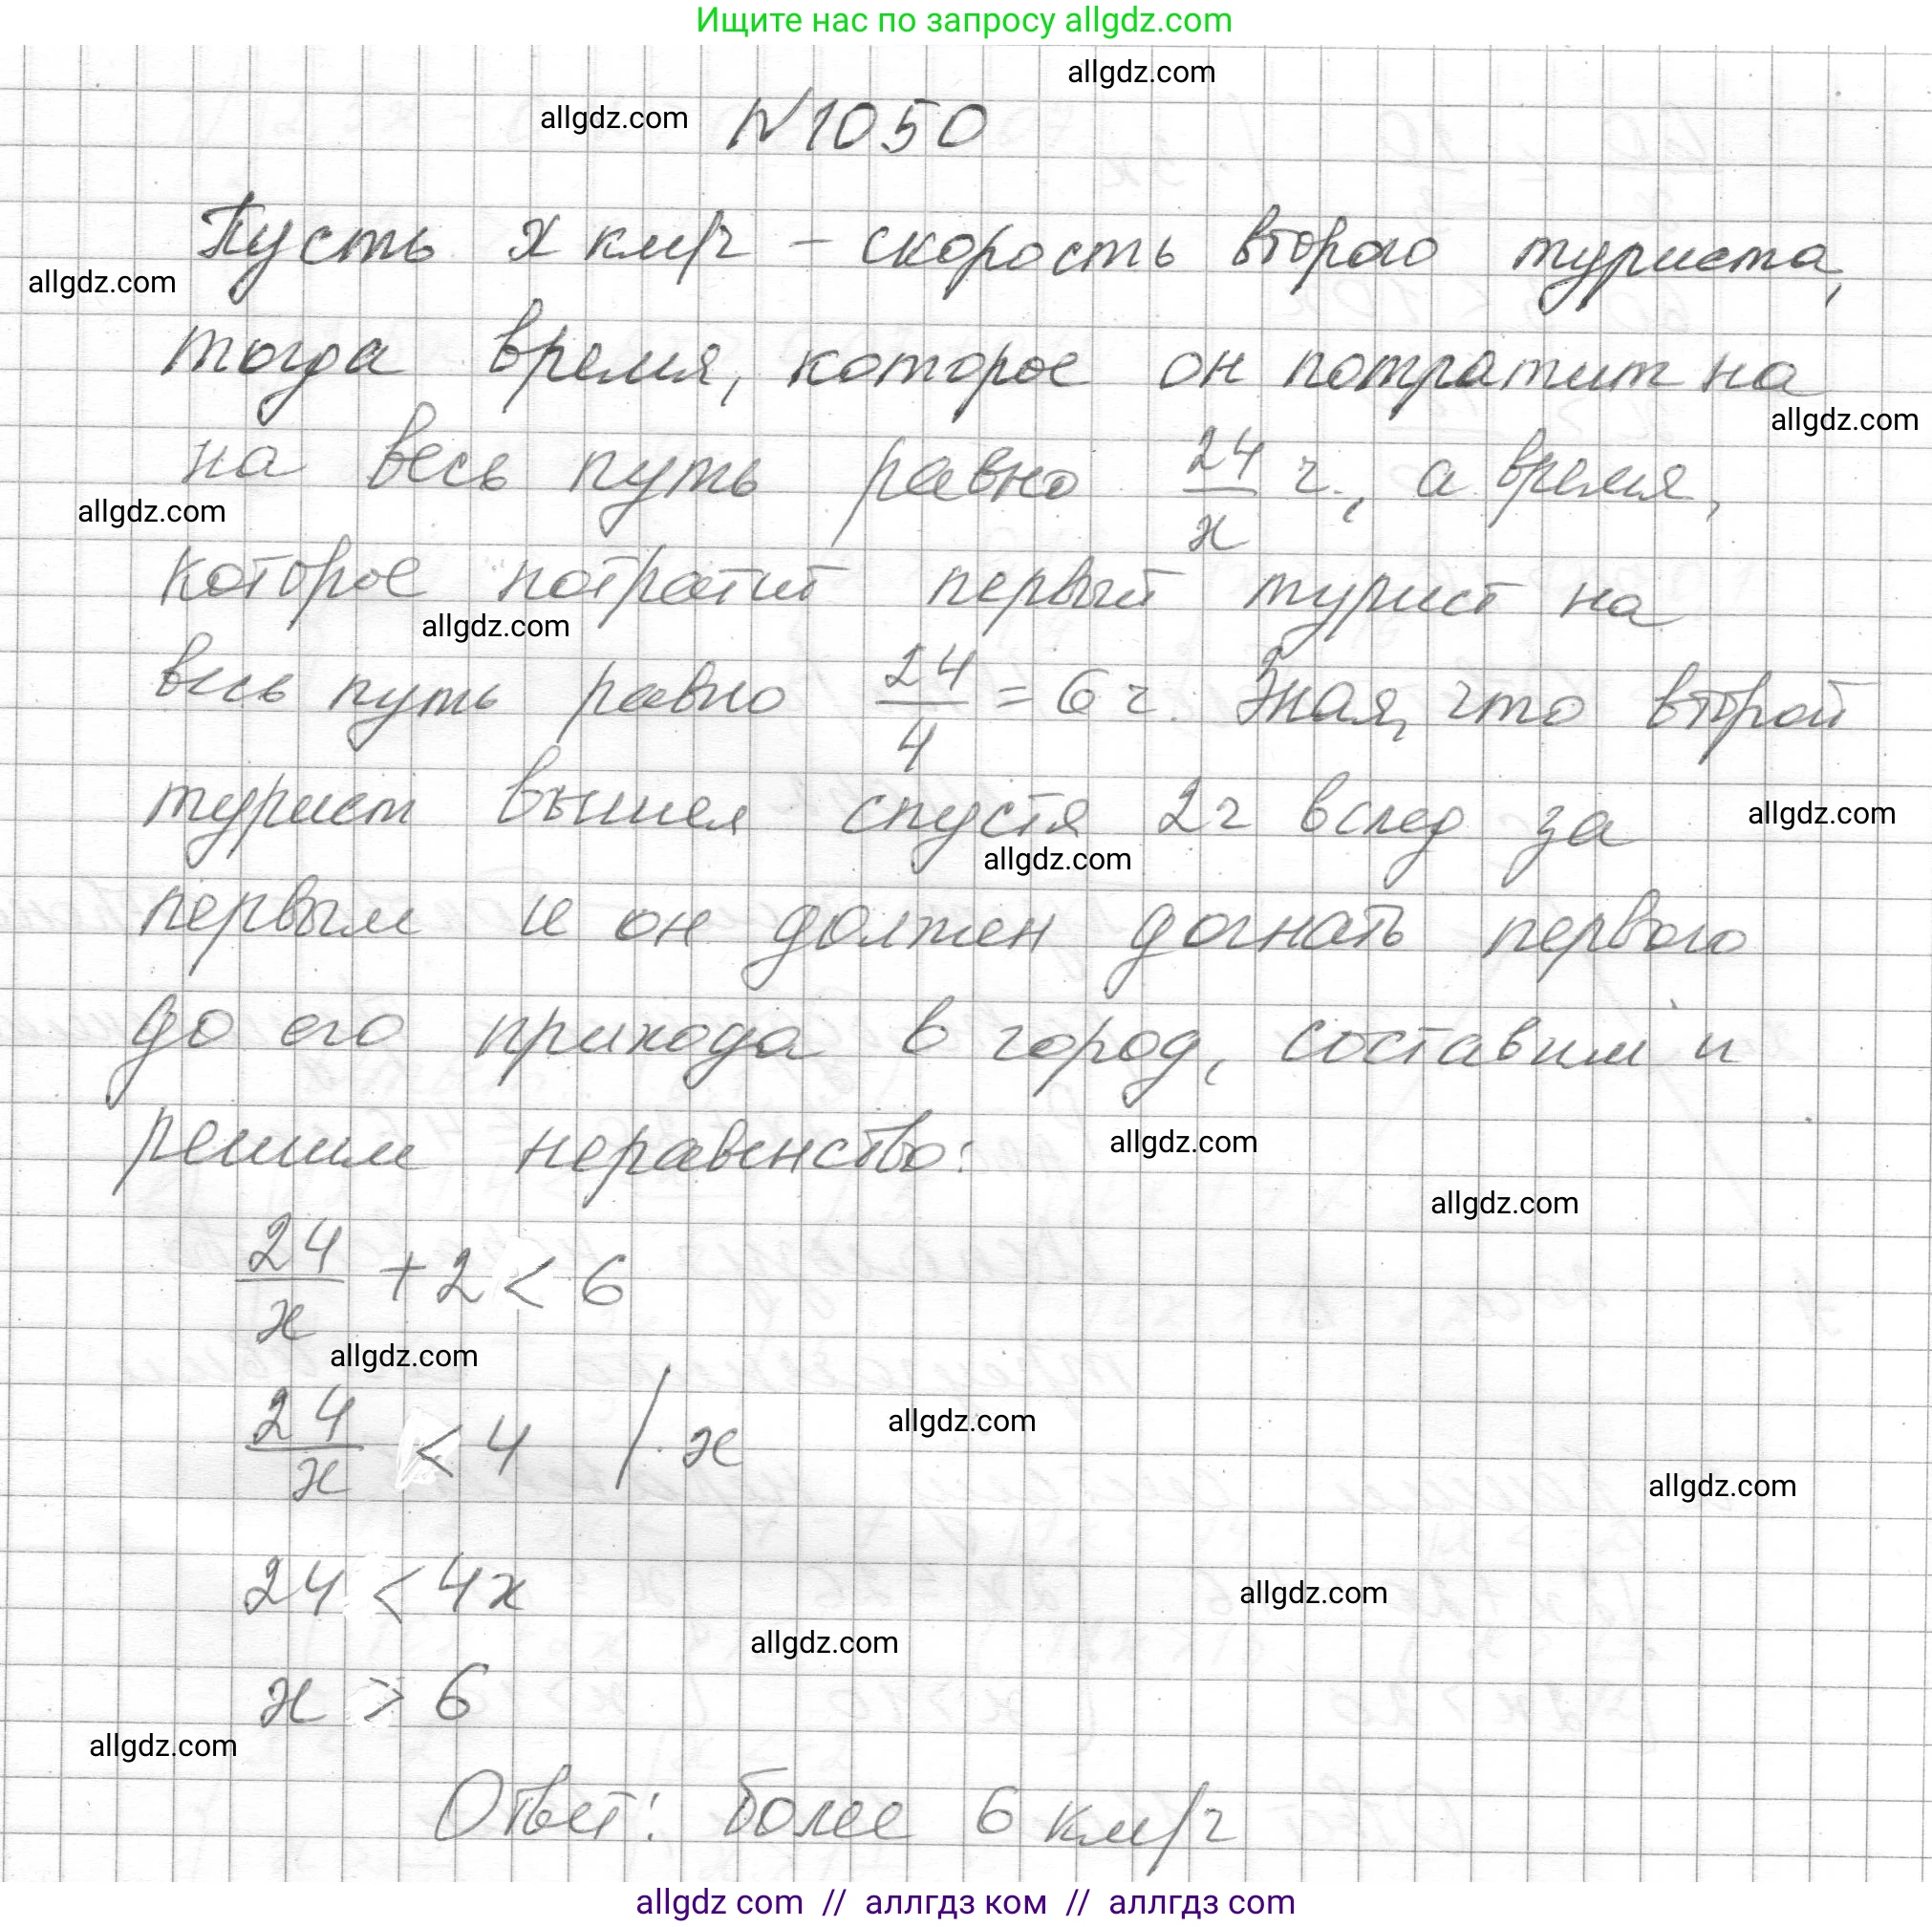 Ищите нас по запросу allgdz.com
allgdz.com
allgdz.com
N 1050
Пусть x км/ч – скорость второго туриста,
allgdz.com
тогда время, которое он потратит на
allgdz.com
на весь путь равно 24/x ч., а время,
allgdz.com
которое потратит первый турист на
allgdz.com
весь путь равно 24/4 = 6 ч. Зная, что второй
турист вышел спустя 2ч вслед за
allgdz.com
allgdz.com
первым и он должен догнать первого
до его прихода в город, составим и
решим неравенство:
allgdz.com
allgdz.com
24/x + 2 < 6
allgdz.com
24/x < 4 | · x
allgdz.com
allgdz.com
24 < 4x
allgdz.com
allgdz.com
x > 6
allgdz.com
Ответ: более 6 км/ч
allgdz com // аллгдз ком // аллгдз com